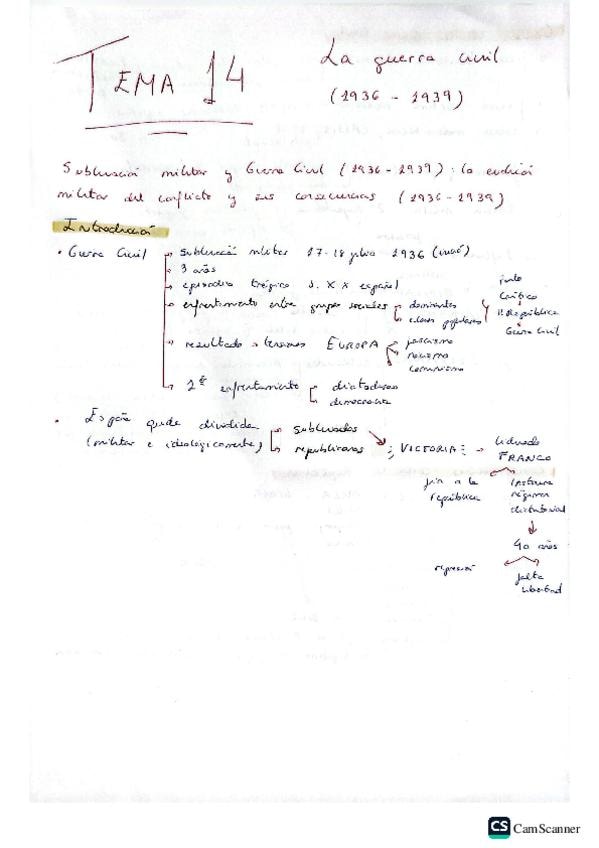 TEMA 14
La guerra civil
(1936 - 1939)
Sublevación militar y Guerra Civil (1936 - 1939): la evolución
militar del conflicto y sus consecuencias (1936 - 1939)
Introducción
• Guerra Civil → sublevación militar 17-18 julio 1936 (inició)
→ 3 años
→ episodio trágico s. XX español
→ enfrentamiento entre grupos sociales → dominantes
→ clases populares
punto
crítico
II República
Guerra Civil
→ resultado → tensiones EUROPA → fascismo
→ nazismo
→ comunismo
→ 2º enfrentamiento → dictaduras
→ democracia
• España queda dividida
(militar e ideológicamente) → sublevados
→ republicanos
¡VICTORIA! → liderado
FRANCO
fin a la
república
instaura
régimen
dictatorial
40 años
represión
falta
libertad
CS CamScanner